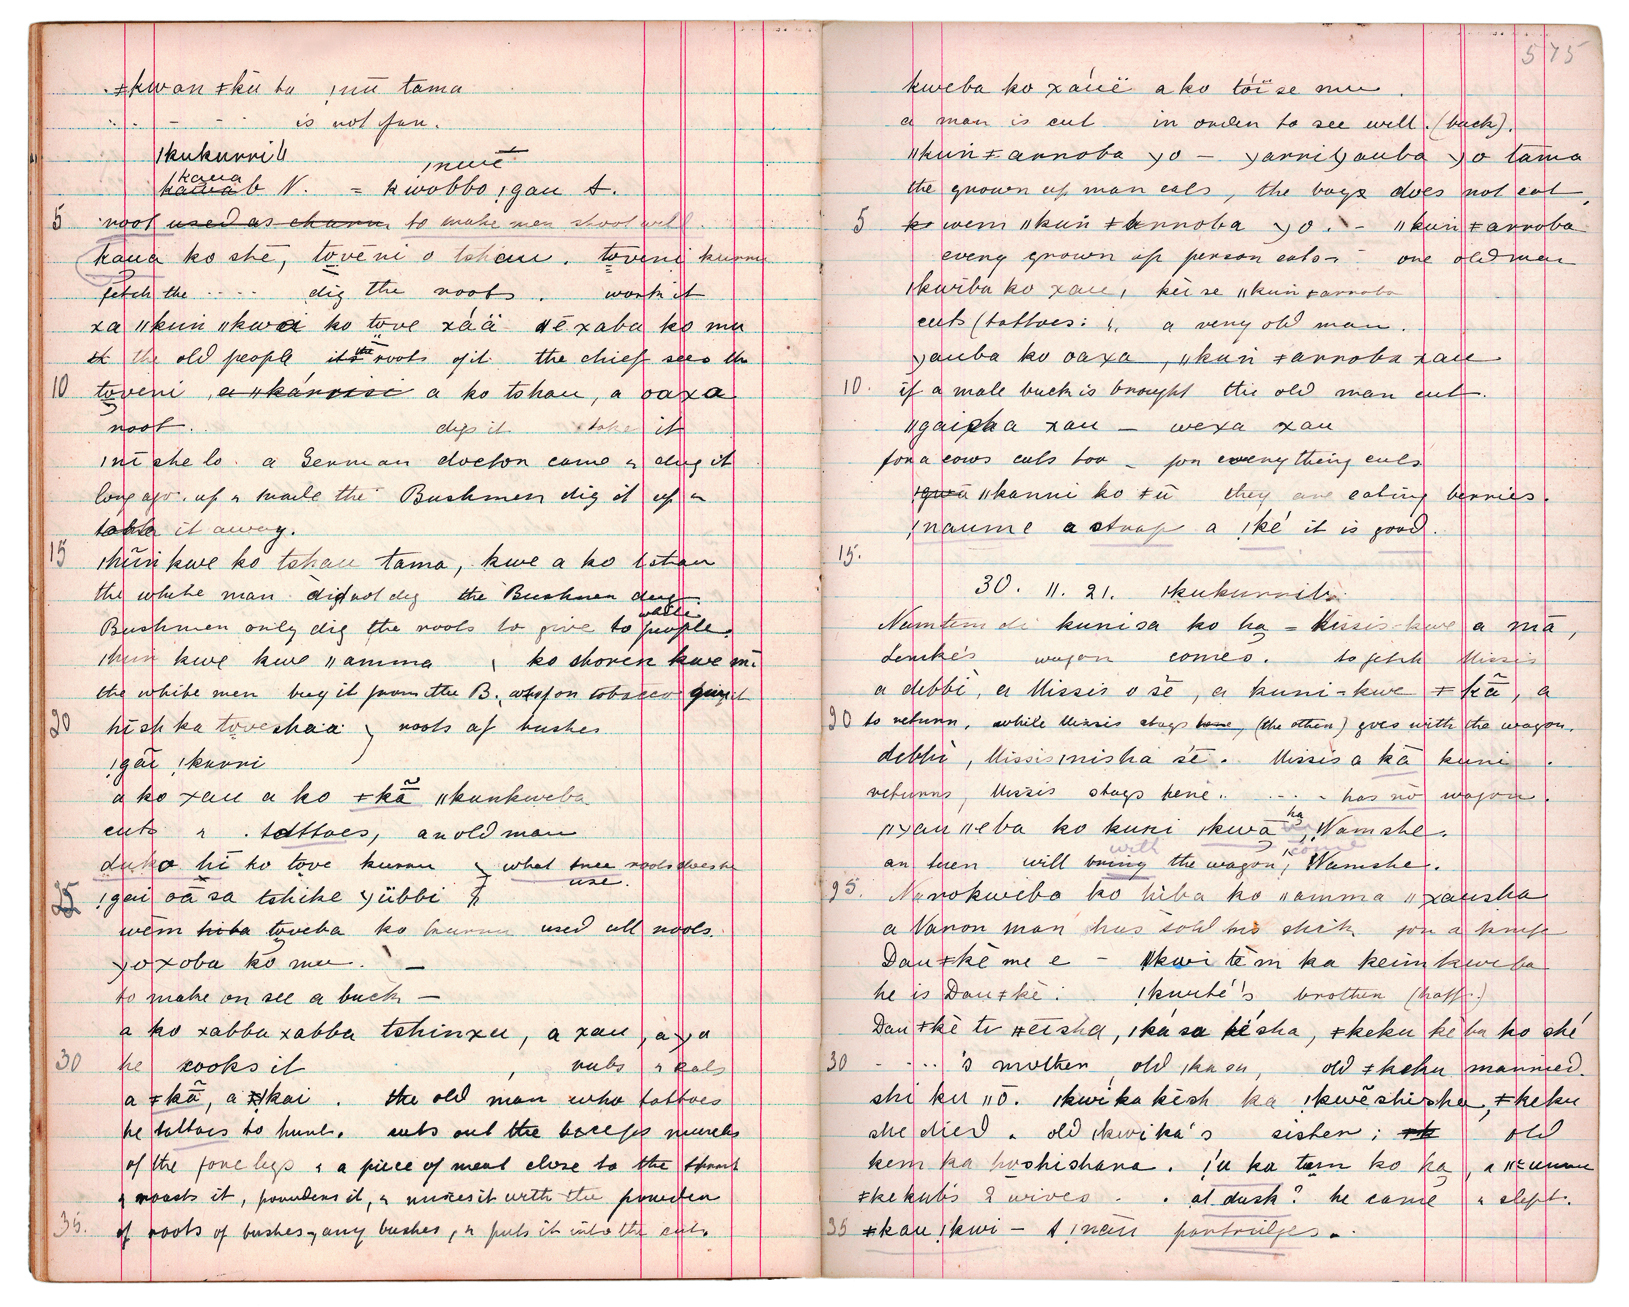 ǂkwan ǂkū ta ǃnū tama
is not far.
ǀkukurrib
ǃnwē
kaua
b N. = kwobbo ǃgau t.
5 root used as charm to make men shoot well
kaua ko shē, toveni o tshau. toveni kurru
fetch the ..... dig the roots. work it
xa ǁkun ǁkwa ko tove xáä ǁē xaba ko mu
the old people its the roots of it the chief sees the
10 toveni, a ko tshau, a oaxa
root. dig it take it
ǀnī she lo. a German doctor came & dug it
long ago. up & made the Bushmen dig it up &
it away.
15 ǀhūn kwe ko tshau tama, kwe a ko tshau
the white man did not dig the Bushmen dug
white
Bushmen only dig the roots to give to people.
ǀhun kwe kwe ǁamma & ko shoren kwe mī
the white men buy it from the B. tobacco give it
20 hish ka toveshaa } roots of bushes
ǃgāi ǃkurri
a ko xau a ko ǂkã ǁkunkweba
cuts & tattoes, an old man
duko hī ko tove kurru what tree roots does he
use.
25 ǃgai oā sa tshike yübbi
wēm hiba toveba ko kurru used all roots.
yoxoba ko mu. —
to make on see a buck —
a ko xabba xabba tshinxu, a xau, a ya
30 he cooks it , rubs & eats
a ǂkã, a ǂkai. the old man who tattoes
he tattoes to hunt. cuts out the biceps muscles
of the fore legs & a piece of meat close to the throat
& roasts it, powders it, & mixes it with the powder
35. of roots of bushes, any bushes, & puts it into the cut.
575
kweba ko xauë a ko tóï se mu.
a man is cut in order to see well. (buck).
ǁkun ǂarroba yo — yarriyauba yo tama
the grown up man eats, the boys does not eat.
5 wem ǁkun ǂarroba yo. — ǁkun ǂarroba
every grown up person eats — one old man
ǀkwiba ko xau, kēi se ǁkun ǂarroba
cuts (tattoes: &. a very old man.
yauba ko oaxa, ǁkun ǂarroba xau
10. if a male buck is brought the old man cut.
ǁgaisha xau — wexa xau
for a cows cuts too — for everything cuts
ǁkanni ko ǂū they are eating berries.
ǃnaume a strap a ǃké it is good.
15.
30. 11. 21. ǀkukurrib.
Namtem di kunisa ko ha = Missis-kwe a mā,
Lemke's wagon comes. to fetch Missis
a debbi, a Missis o sē, a kuni-kwe ǂkã, a
20 to return, while Missis stays here, (the other) goes with the wagon.
debbi, Missis ǀnisha sē. Missis a kā kuni.
returns, Missis stays here. .... has no wagon.
ǁxau ǁeba ko kuni ǀkwā ha, Wamshe.
with come
an tuen will bring the wagon, Wamshe.
25. Narokweba ko hiba ko ǁamma ǁxausha
a Naron man has sold his stick for a knife
Dauǂkē me e — ǁkwi tēm ka keinkweba
he is Dauǂkē: ǀkwité's brother (half.)
Dauǂkē ti ǂeisha, ǀkása késha, ǂkeku kēba ko shé
30 ....'s mother old ǀkasa, old ǂkeku married.
shi ku ǁō. ǀkwikakēsh ka ǀkwēshisha, ǂkeku
she died. old ǀkwika's sister; old
kem ka hoshishara. ǃu ka tam ko ha, a ǁumm
ǂkekub's 2 wives . . at dusk? he came & slept.
35 ǂkau ǃkwi — t ǃnāu partridges.